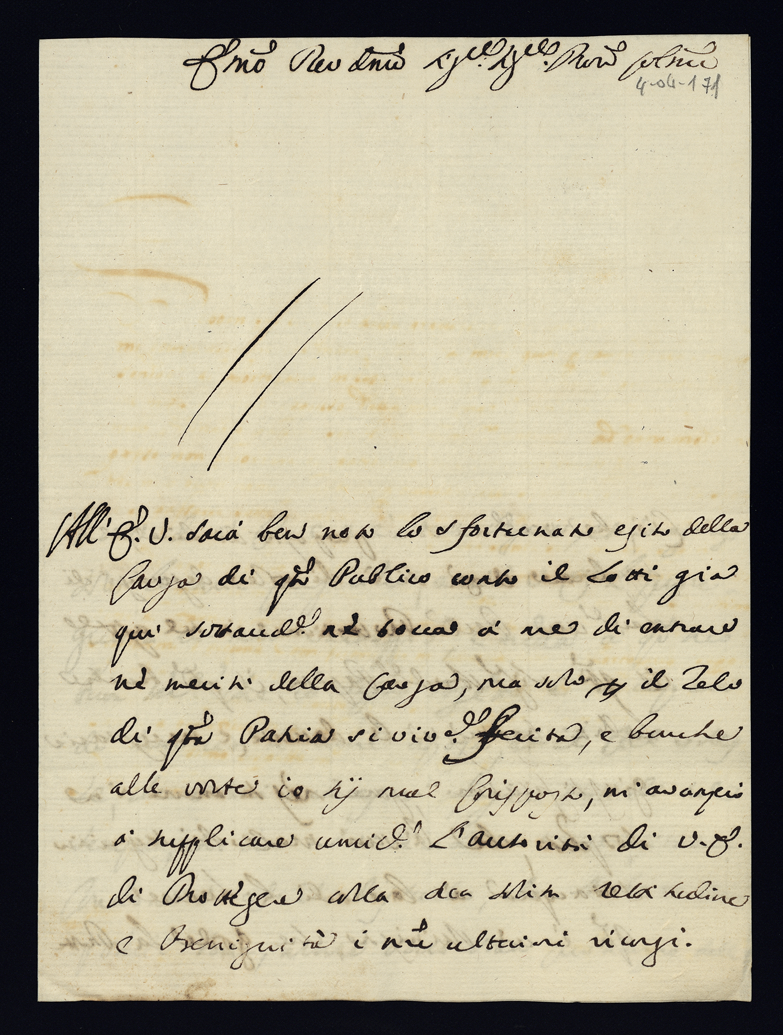 Em̃o Rev
4-04-171
All' E. V. sarà ben noto lo sfortunato esito della
Causa di qto Publico conto il Lotti già
qui né tocca à me di entrare
nè meriti della Causa, ma solo il Zelo
di qta Patria si ferita, e benche
alle volte io sij mal Corrisposto, m'avanzo
à supplicare L'autorità di V. E.
di Protteger colla sua solita rettitudine
e Benignità i nri ulteriori ricorsi.